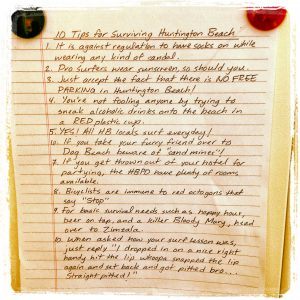 10 Tips for Surviving Huntington Beach
1. It is against regulation to have socks on while
wearing any kind of sandal.
2. Pro Surfers wear sunscreen, so should you.
3. Just accept the fact that there is NO FREE
PARKING in Huntington Beach!
4. You're not fooling anyone by trying to
sneak alcoholic drinks onto the beach in
a RED plastic cup.
5. YES! All HB locals surf everyday!
6. If you take your furry friend over to
Dog Beach beware of "land mines"!
7. If you get thrown out of your hotel for
partying, the HBPD have plenty of rooms
available.
8. Bicyclists are immune to red octagons that
say "Stop"
9. For basic survival needs such as happy hour,
beer on tap, and a killer Bloody Mary, head
over to Zimzala.
10. When asked how your surf lesson was,
just reply "I dropped in on a nice right
handy hit the lip whoopa snapped the lip
again and set back and got pitted bro...
Straight pitted!"